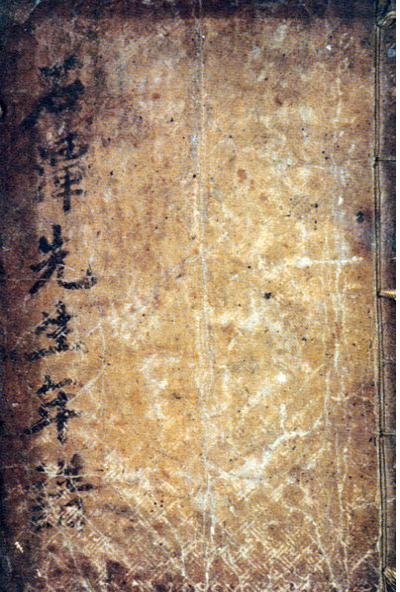 石潭先生年譜